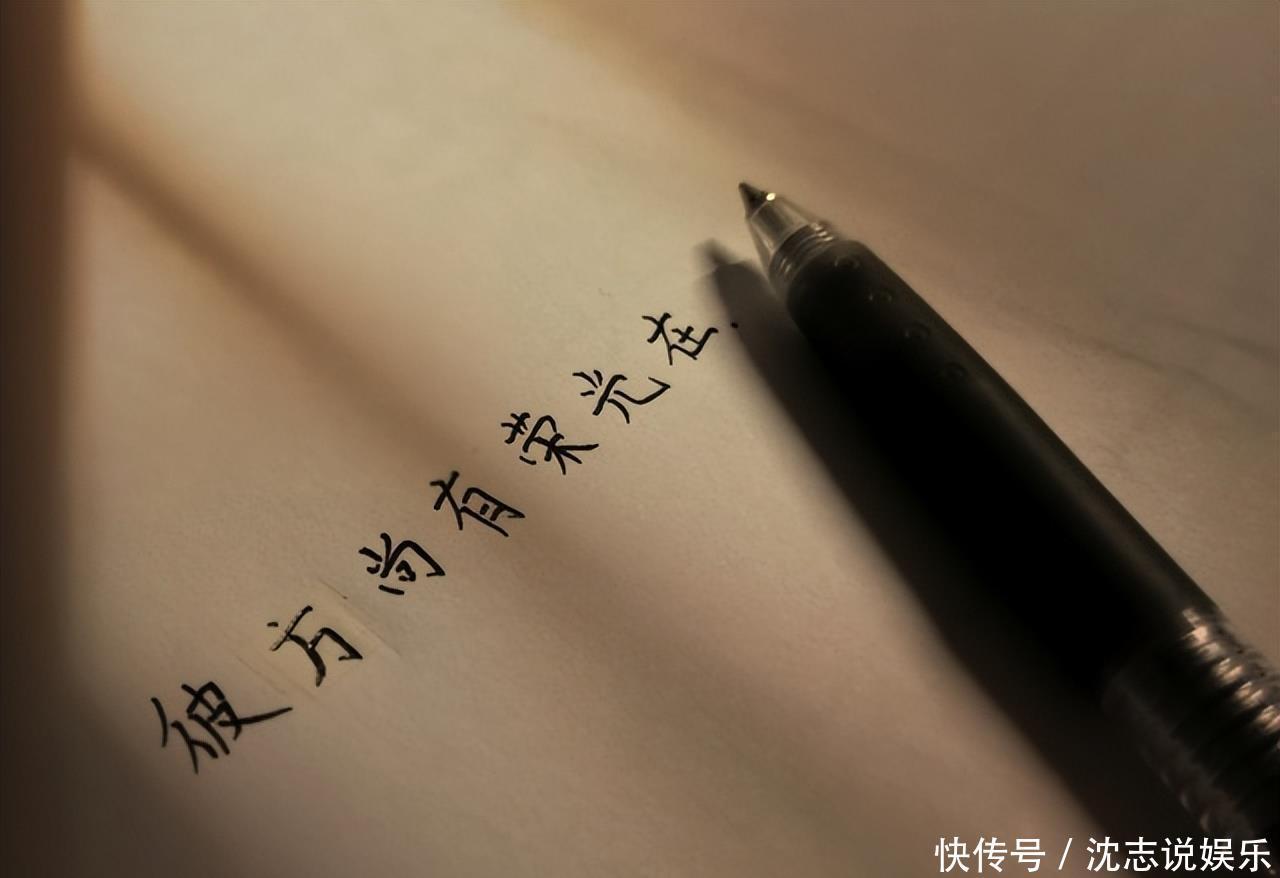 彼方尚有荣光在.
快传号 / 沈志说娱乐